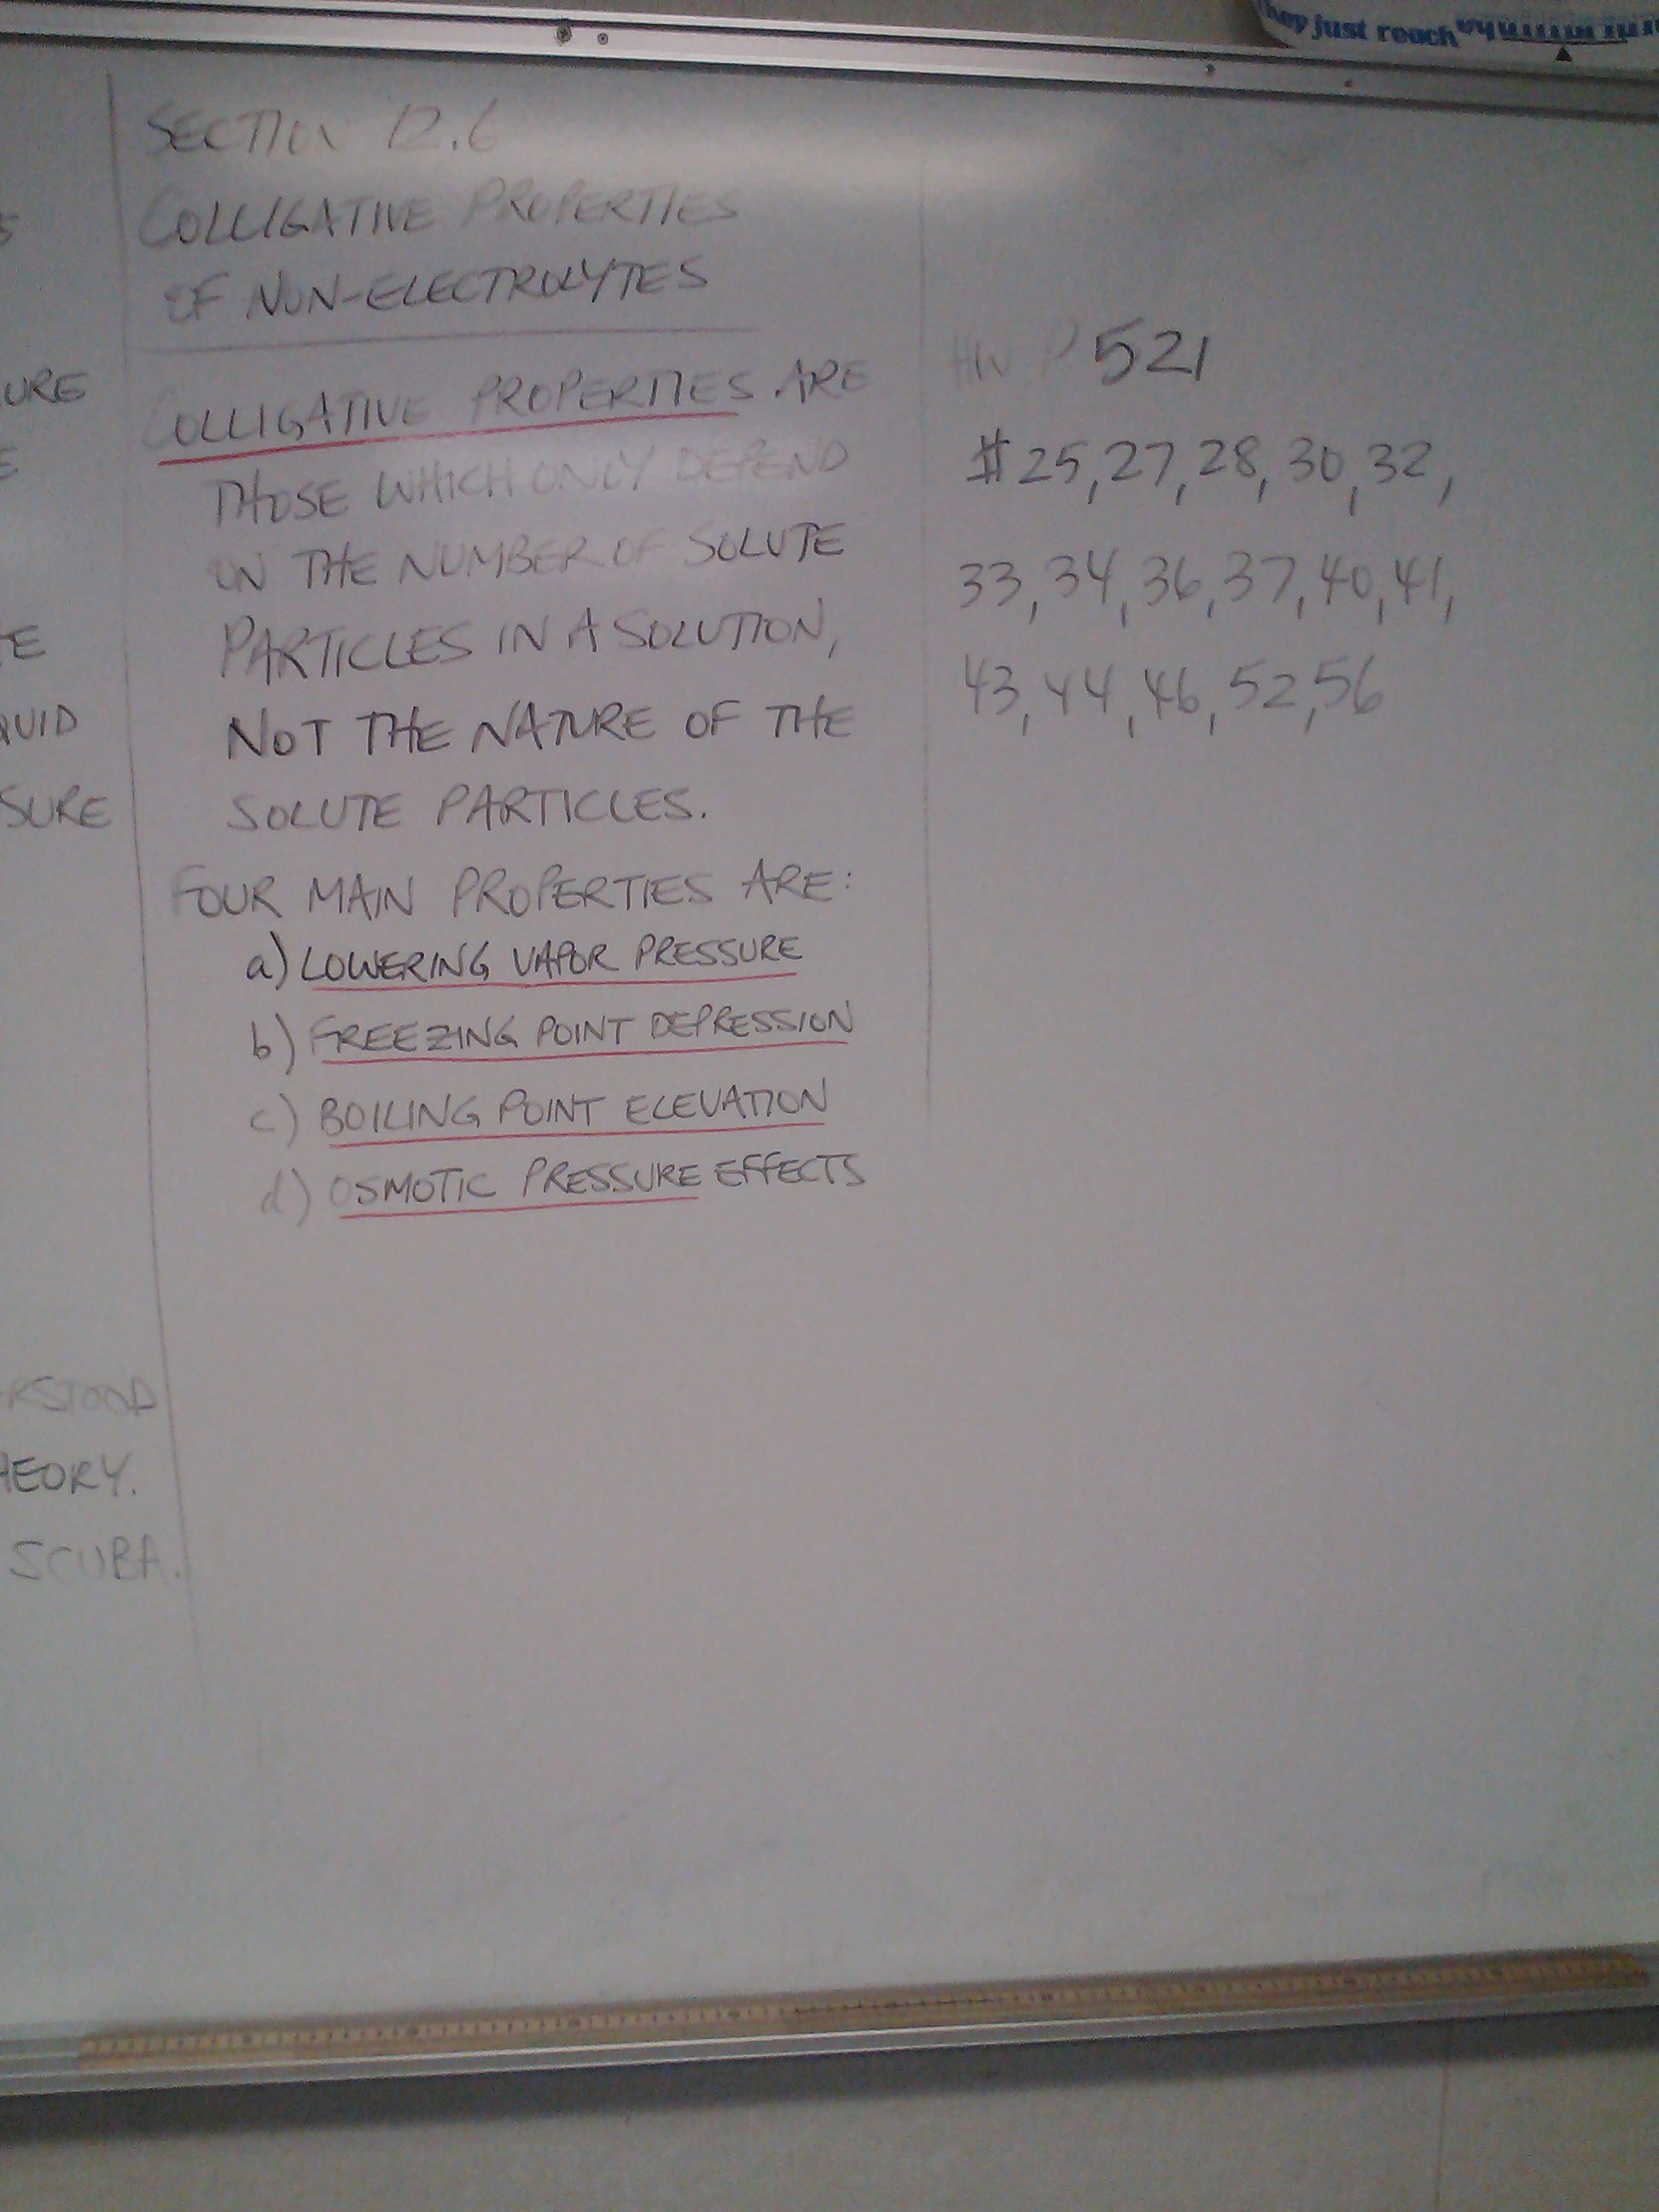 They just reach
SECTION 12.6
COLLIGATIVE PROPERTIES
OF NON-ELECTROLYTES
COLLIGATIVE PROPERTIES ARE
THOSE WHICH ONLY DEPEND
ON THE NUMBER OF SOLUTE
PARTICLES IN A SOLUTION,
NOT THE NATURE OF THE
SOLUTE PARTICLES.
FOUR MAIN PROPERTIES ARE:
a) LOWERING VAPOR PRESSURE
b) FREEZING POINT DEPRESSION
c) BOILING POINT ELEVATION
d) OSMOTIC PRESSURE EFFECTS
HW P 521
# 25, 27, 28, 30, 32,
33, 34, 36, 37, 40, 41,
43, 44, 46, 52, 56
URE
E
TE
QUID
SURE
ERSTOOD
HEORY.
SCUBA.